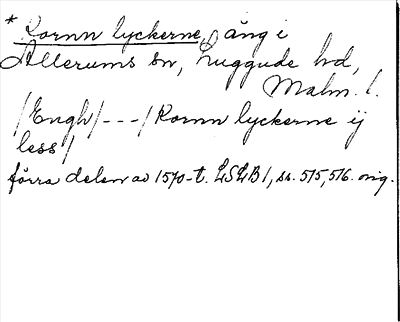 * Kornn lyckerne, äng i
Allerums sn, Luggude hd,
Malm. l.
/Engh/ --- / Kornn lyckerne ij
less /
förra delen av 1570-t. LSLB 1, s. 515, 516. orig.